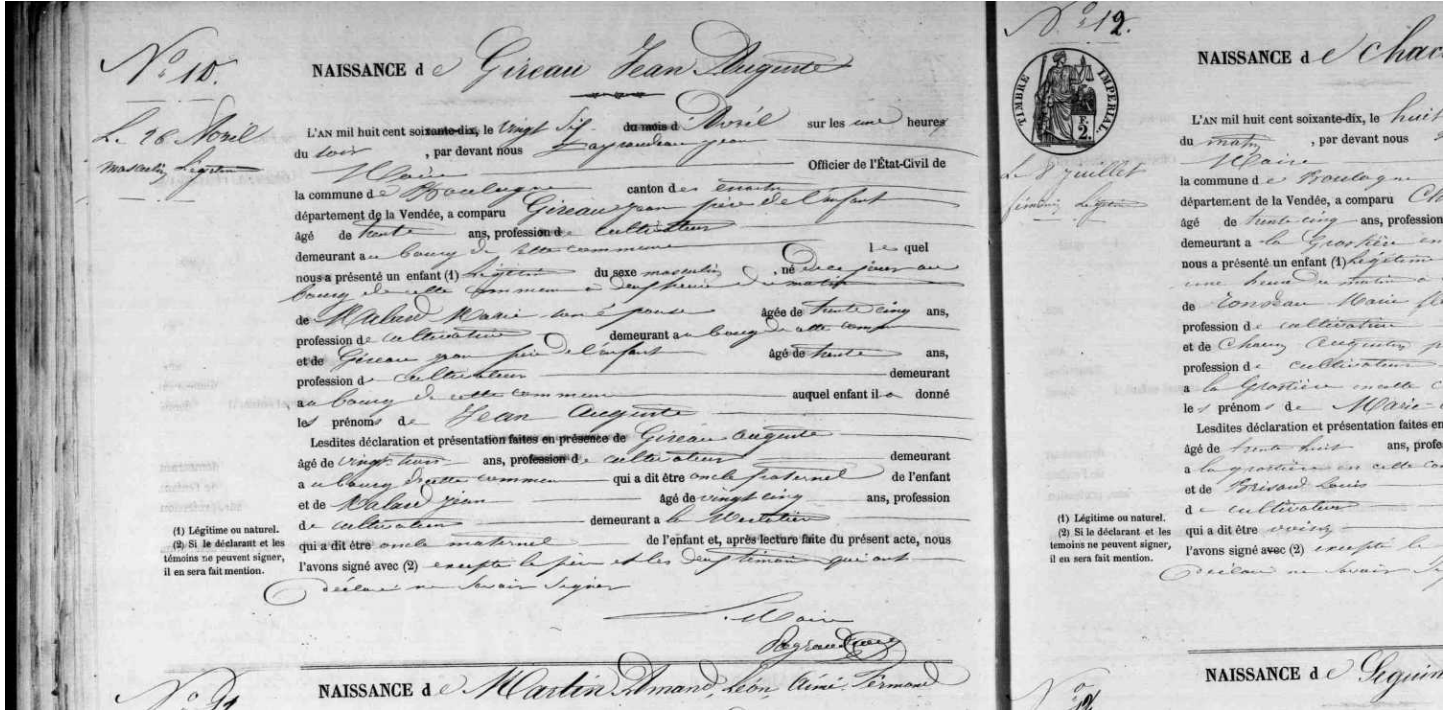 N° 10.
NAISSANCE de Gireau Jean Auguste
Le 26 Avril
masculin Légitime
L'AN mil huit cent soixante-dix, le vingt six du mois d'Avril sur les une heures
du soir, par devant nous jean
Maire Officier de l'État-Civil de
la commune de Boulogne canton des essarts
département de la Vendée, a comparu Gireau jean père de l'enfant
âgé de trente ans, profession de cultivateur
demeurant au bourg de cette commune lequel
nous a présenté un enfant (1) légitime du sexe masculin, né de ce jour au
bourg de cette commun a deux heure du matin
de Malard Marie son épouse âgée de trente cinq ans,
profession de cultivatrice demeurant au bourg de cette comm
et de Gireau jean père de l'enfant âgé de trente ans,
profession de cultivateur demeurant
au bourg de cette commune auquel enfant il a donné
les prénoms de Jean Auguste
Lesdites déclaration et présentation faites en présence de Gireau auguste
âgé de vingt trois ans, profession de cultivateur demeurant
au bourg de cette commun qui a dit être oncle paternel de l'enfant
et de Malard jean âgé de vingt cinq ans, profession
de cultivateur demeurant a la
qui a dit être oncle maternel de l'enfant et, après lecture faite du présent acte, nous
l'avons signé avec (2) excepté le père et les deux témoin qui ont
déclaré ne savoir signer
(1) Légitime ou naturel.
(2) Si le déclarant et les
témoins ne peuvent signer,
il en sera fait mention.
Le Maire
NAISSANCE de Martin Amand Léon Aimé Fernand
N° 11
N° 12.
TIMBRE IMPÉRIAL.
F. 2.
NAISSANCE de Chac
Le 8 juillet
L'AN mil huit cent soixante-dix, le huit
du matin, par devant nous
Maire
la commune de Boulogne
département de la Vendée, a comparu Ch
âgé de trente cinq ans, profession
demeurant a la Grostière en
nous a présenté un enfant (1) légitime
une heure du matin a
de Marie
profession de cultivatrice
et de Augustin p
profession de cultivateur
a la Grostière en cette c
les prénoms de Marie
Lesdites déclaration et présentation faites en
âgé de trente huit ans, profe
a la grostière en cette co
et de Louis
de cultivateur
qui a dit être voisin
l'avons signé avec (2) excepté le
déclaré ne savoir
(1) Légitime ou naturel.
(2) Si le déclarant et les
temoins ne peuvent signer,
il en sera fait mention.
NAISSANCE de Seguin
N° 12